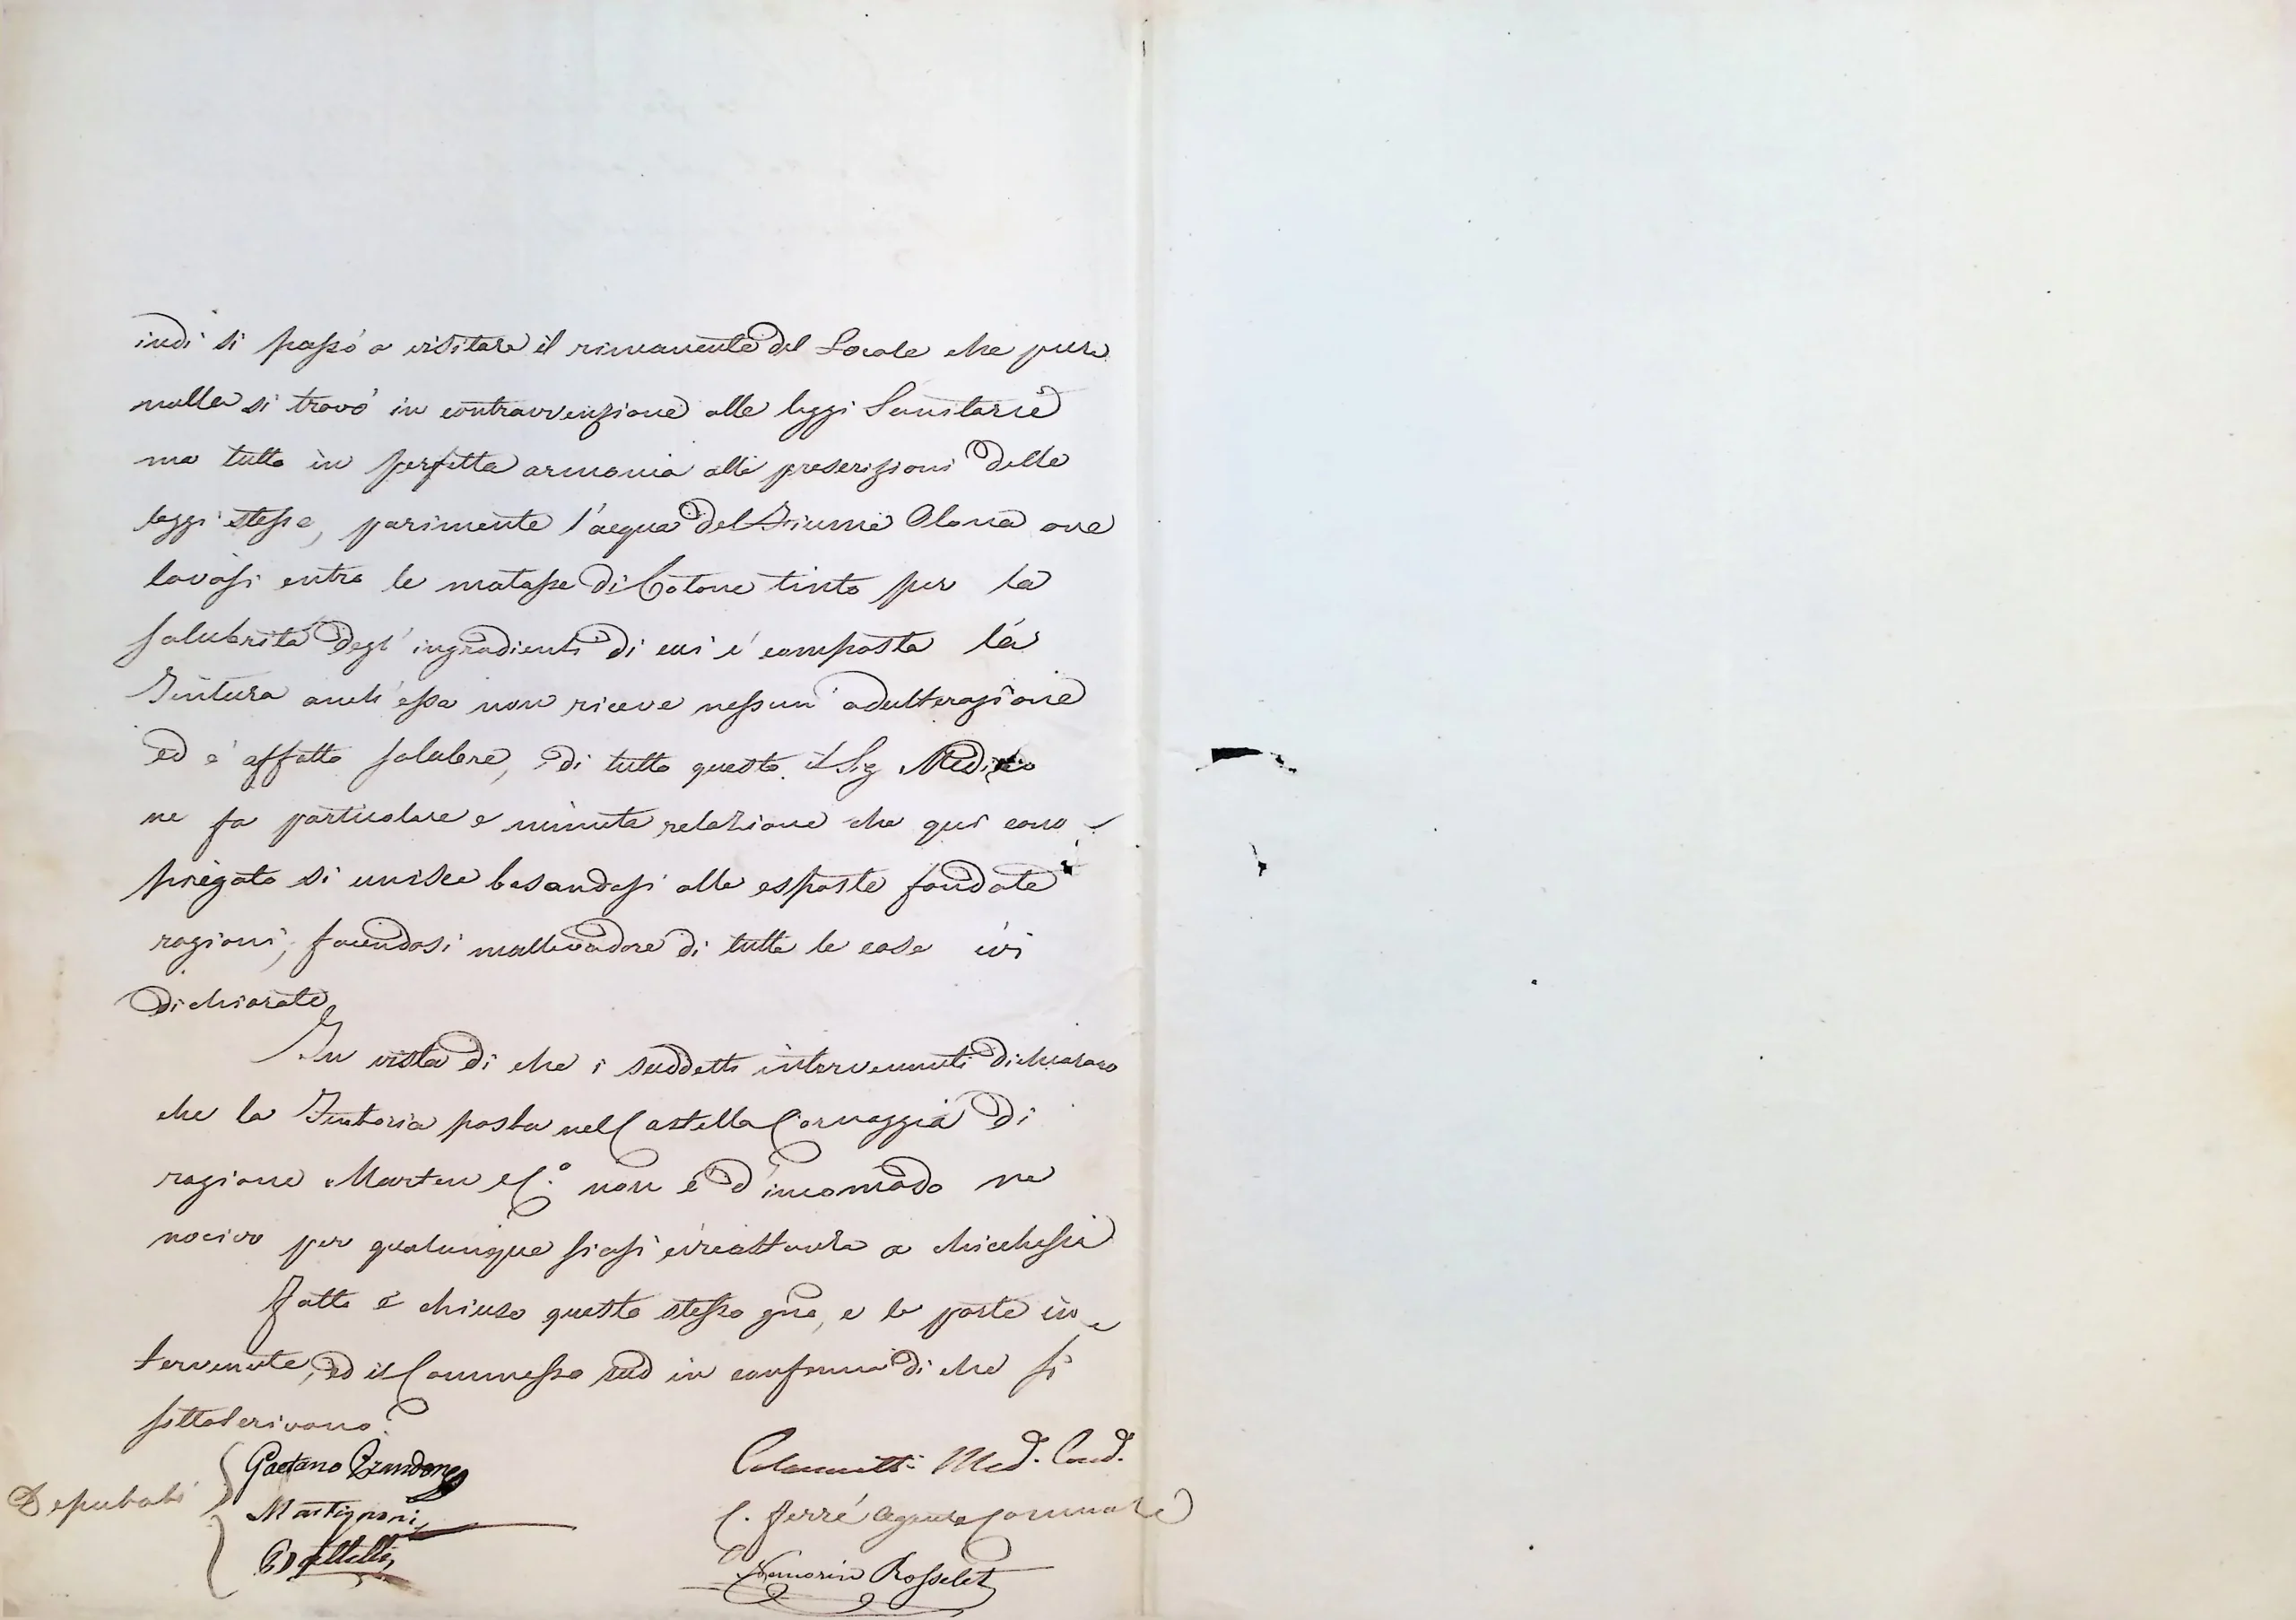 indi si passò a visitare il rimanente del Locale che pure
nulla si trovò in contravvenzione alle leggi Sanitarie
ma tutto in perfetta armonia alle prescrizioni delle
leggi stesse, parimente l'acqua del Fiume Olona ove
lavasi entro le matasse di Cotone tinto per la
salubrità degl'ingredienti di cui è composta la
Tintura anch'essa non riceve nessun'adulterazione
ed è affatto salubre, di tutto questo il Sig Medico
ne fa particolare e minuta relazione che qui com-
piegato si unisce basandosi alle esposte fondate
ragioni, facendosi mallevadore di tutte le cose ivi
dichiarate
In vista di che i suddetti intervenuti dichiarano
che la Tintoria posta nel Castello Cornaggia di
ragione Marten e C.° non è d'incomodo ne
nocivo per qualunque siasi circostanza a chicchessia
Fatto e chiuso questo stesso gno, e le parte in-
tervenute, ed il Commesso sud in conferma di che si
sottoscrivono
Deputati
Gaetano Brandone
Martignoni
Med. Cond.
C. Ferrè Agente Comunale
Nemorin Rosselet